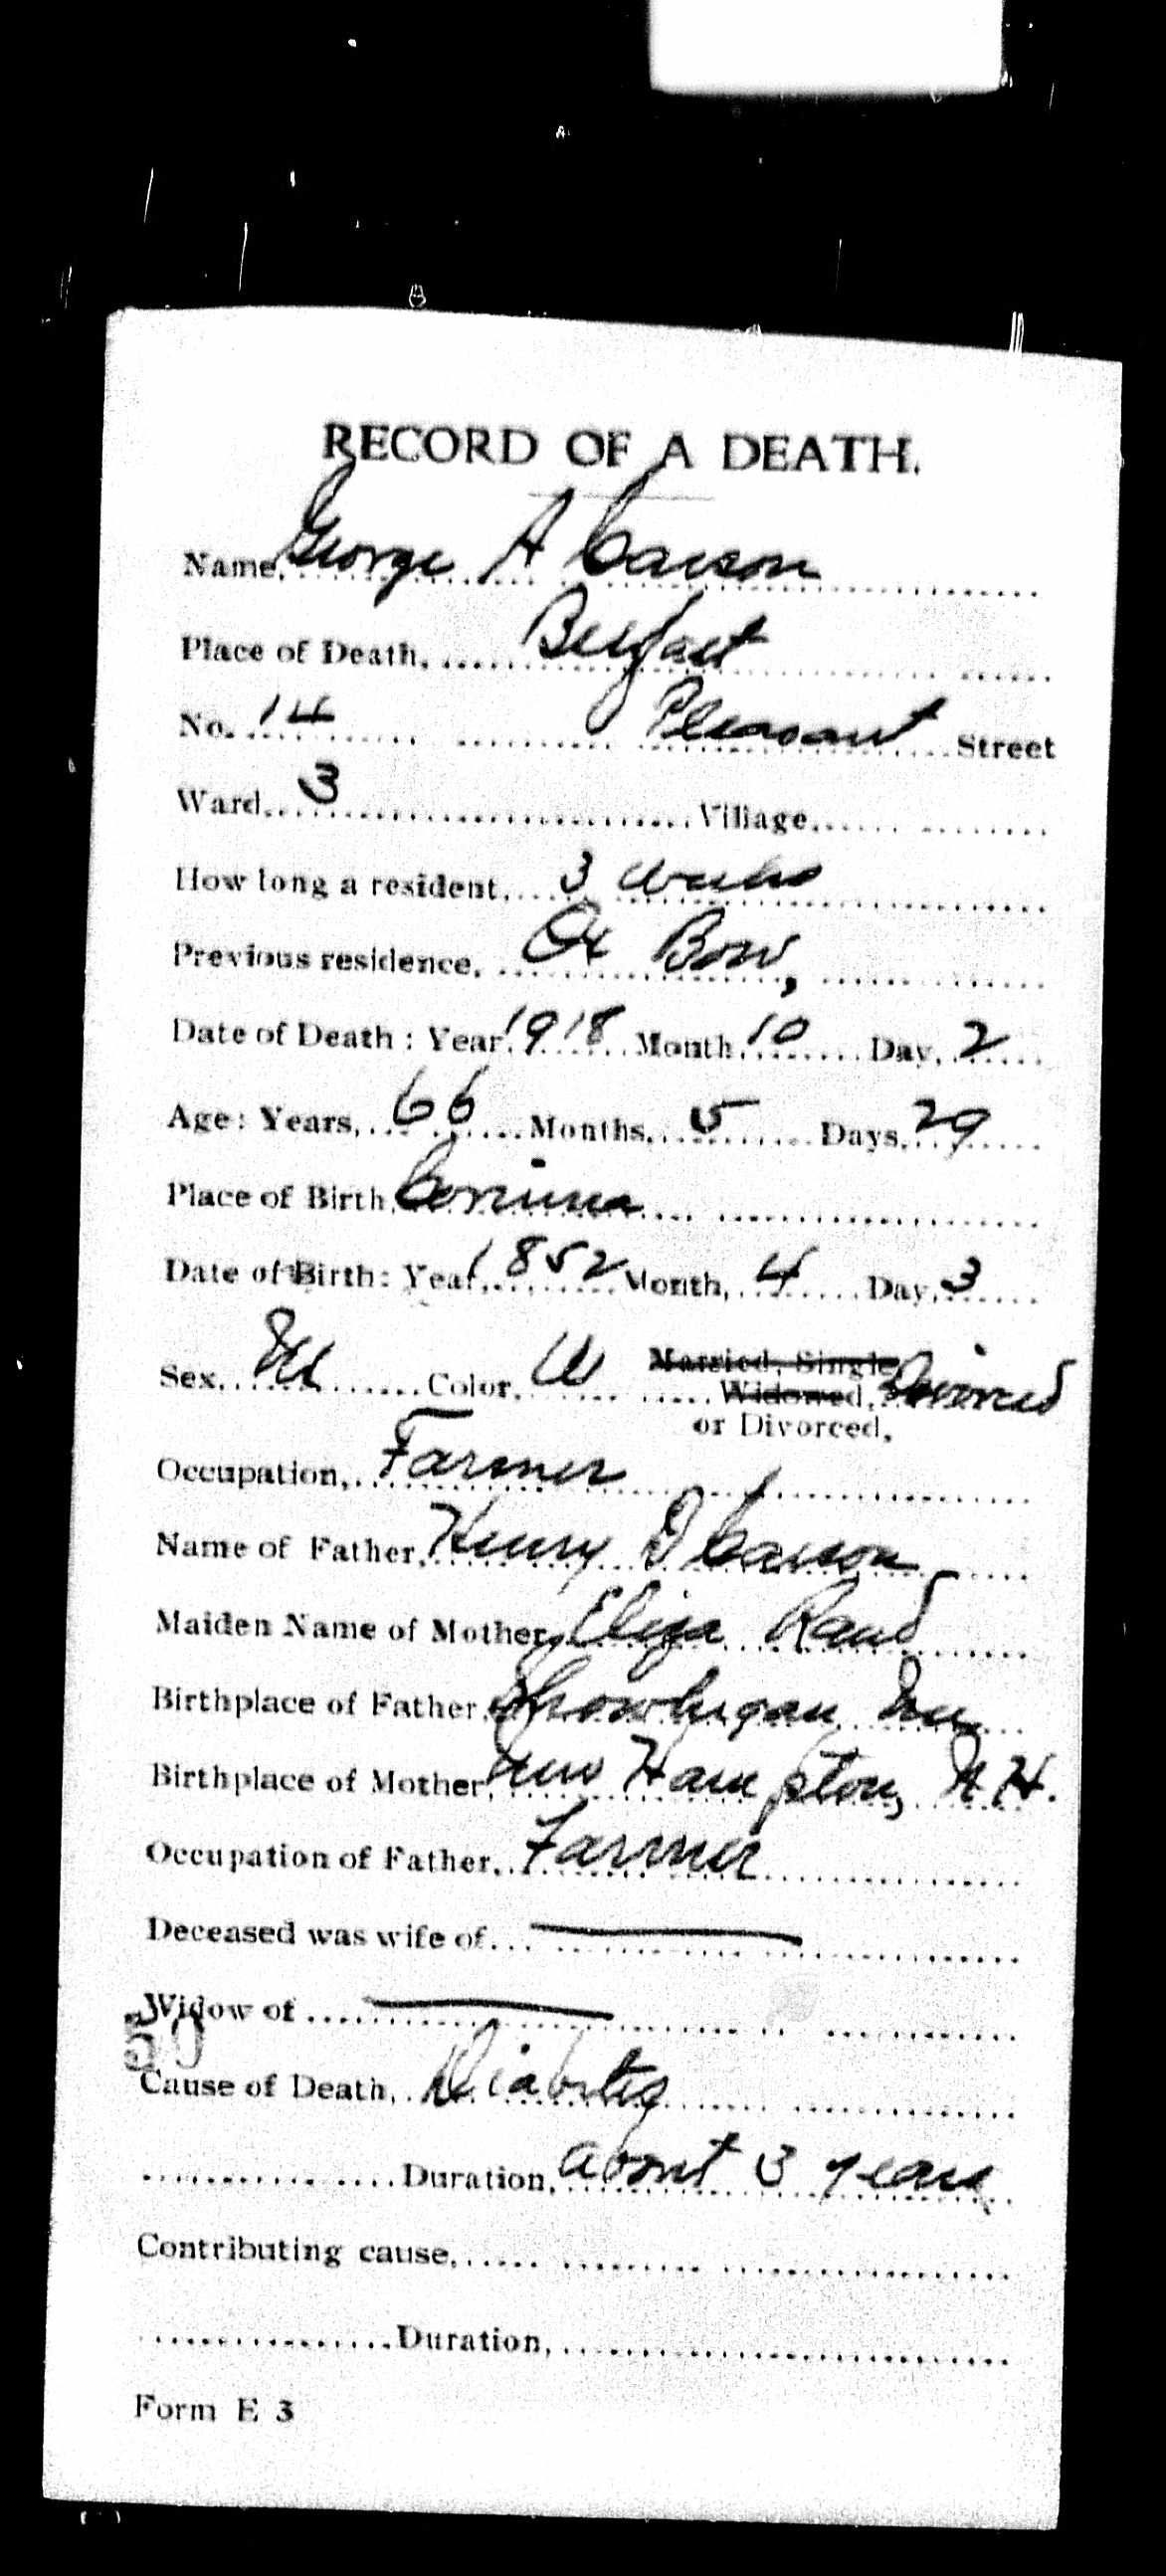 RECORD OF A DEATH.
Name, George A Carson
Place of Death, Belfast
No. 14 Pleasant Street
Ward, 3 Village,
How long a resident, 3 weeks
Previous residence, Ox Bow,
Date of Death: Year, 1918 Month, 10 Day, 2
Age: Years, 66 Months, 5 Days, 29
Place of Birth, Corinna
Date of Birth: Year, 1852 Month, 4 Day, 3
Sex, M Color, W Married, Single
Widowed, Divorced
or Divorced,
Occupation, Farmer
Name of Father, Henry D Carson
Maiden Name of Mother, Eliza Rand
Birthplace of Father, Showhegan Me
Birthplace of Mother, New Hampton, N.H.
Occupation of Father, Farmer
Deceased was wife of
Widow of
50
Cause of Death, Diabetes
Duration, about 3 years
Contributing cause,
Duration,
Form E 3